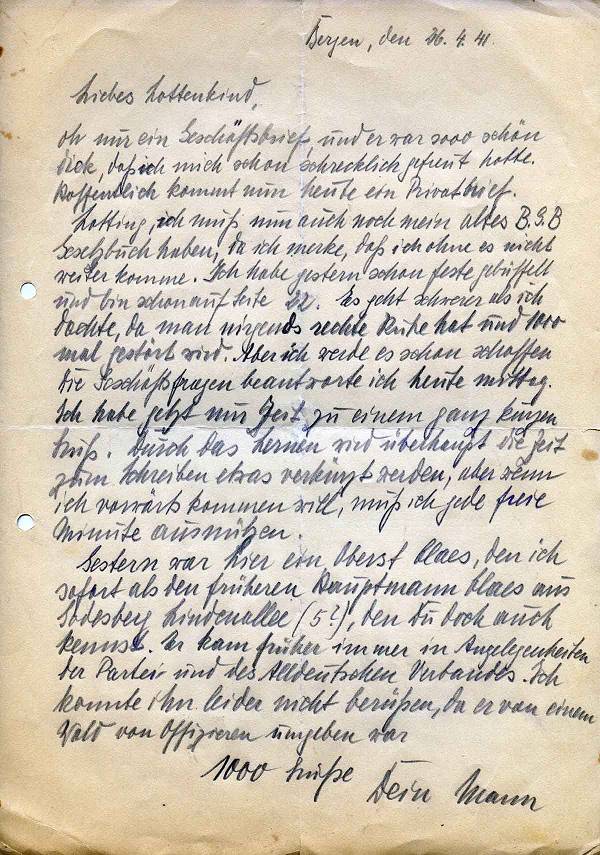 Bergen, den 26.4.41.
Liebes Lottenkind,
oh nur ein Geschäftsbrief und er war sooo schön
dick, daß ich mich schon schrecklich gefreut hatte.
Hoffentlich kommt nun heute ein Privatbrief.
Lotting, ich muß nun auch noch mein altes B.G.B
Gesetzbuch haben, da ich merke, daß ich ohne es nicht
weiter komme. Ich habe gestern schon feste gebüffelt
und bin schon auf Seite 22. Es geht schwerer als ich
dachte, da man nirgends rechte Ruhe hat und 1000
mal gestört wird. Aber ich werde es schon schaffen
Die Geschäftsfragen beantworte ich heute mittag.
Ich habe jetzt nur Zeit zu einem ganz kurzen
Gruß. Durch das Lernen wird überhaupt die Zeit
zum Schreiben etwas verkürzt werden, aber wenn
ich vorwärts kommen will, muß ich jede freie
Minute ausnützen.
Gestern war hier ein Oberst Claes, den ich
sofort als den früheren Hauptmann Claes aus
Godesberg Lindenallee (5?), den Du doch auch
kennst. Er kam früher immer in Angelegenheiten
der Partei und des Alldeutschen Verbandes. Ich
konnte ihn leider nicht berüßen, da er von einem
Wald von Offizieren umgeben war
1000 Grüße
Dein Mann